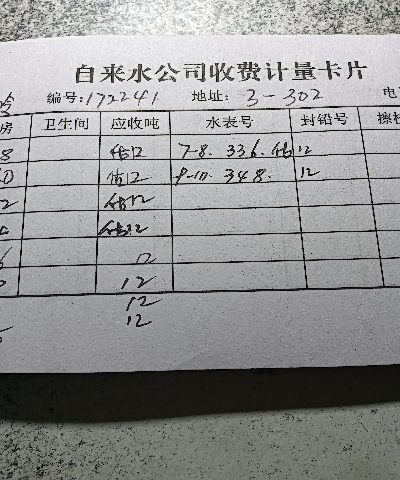 自来水公司收费计量卡片
编号:172241 地址: 3-302 电
房 卫生间 应收吨 水表号 封铅号
8 估12 7-8. 336. 估12
估12 9-10. 348. 12
2 估12
估12
12
12
12
12